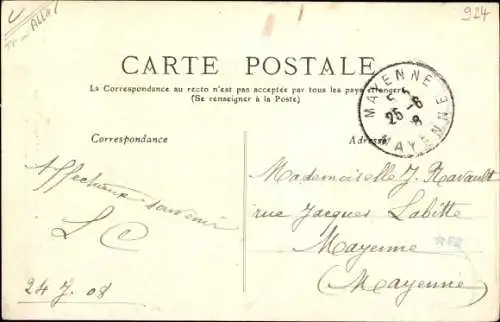 924
CARTE POSTALE
La Correspondance au recto n'est pas acceptée par tous les pays étrangers
(Se renseigner à la Poste)
MAYENNE
25-6
8
MAYENNE
Correspondance
Adresse
Affectueux souvenir
L C
24 J. 08
Mademoiselle J. Ravault
rue Jacques Labitte
Mayenne
(Mayenne)